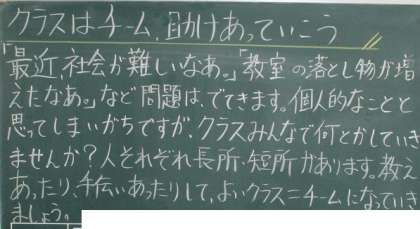 クラスはチーム、助けあっていこう
「最近、社会が難しいなあ。」「教室の落とし物が増
えたなあ。」など問題は、でてきます。個人的なことと
思ってしまいがちですが、クラスみんなで何とかしていき
ませんか?人それぞれ長所・短所があります。教え
あったり、手伝いあったりして、よいクラス=チームになっていき
ましょう。